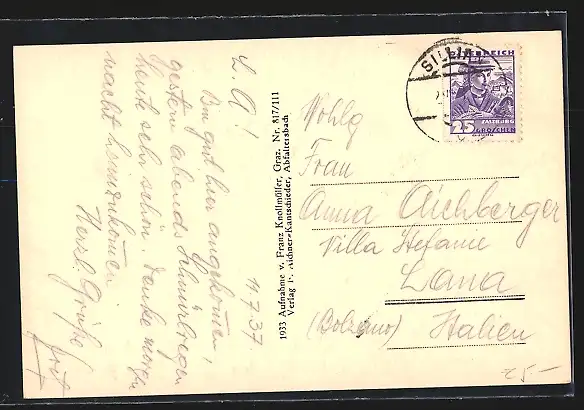 L. A!
11.7.37
Bin gut hier angekommen,
gestern abends Schnürlregen
heute sehr schön. Denke morgen
Herzl. Grüße
1933 Aufnahme v. Franz Knollmüller, Graz. Nr. 817/111
Verlag P. Aichner-Kantschieder, Abfaltersbach
SILLIAN
ÖSTERREICH
SALZBURG
25 GROSCHEN
Wohlg
Frau
Anna Aichberger
Villa Stefanie
Lana
(Bolzano) Italien
25-